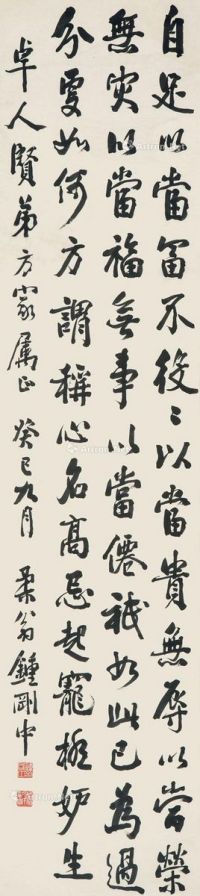 自足以當富不役々以當貴無辱以當榮
無灾以當福無事以當僊祇如此已為過
分更如何方謂稱心名高忌起寵極妒生
卓人賢弟方家属正 癸巳九月 柔翁鍾剛中